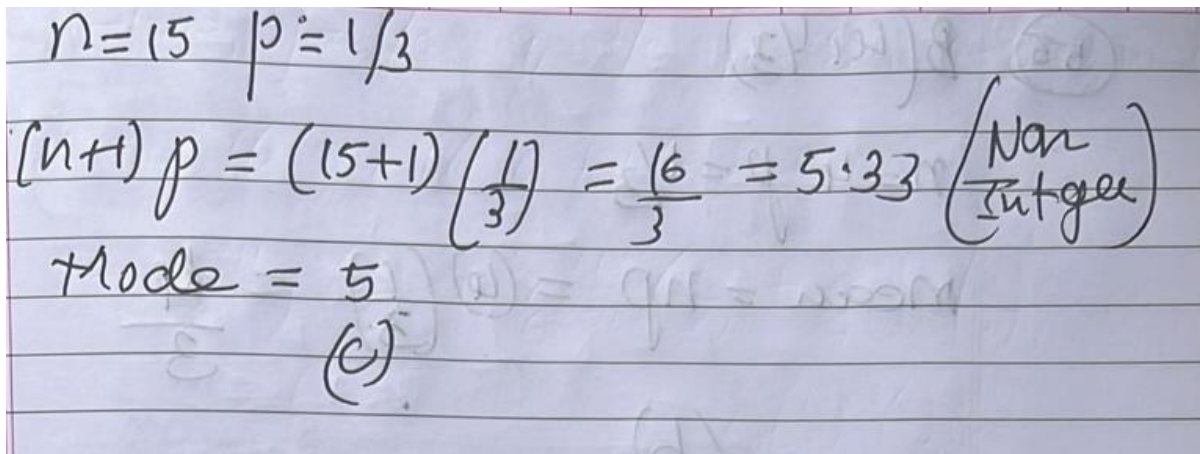 n=15 p=1/3
(n+1) p = (15+1) (1/3) = 16/3 = 5.33 (Non Intger)
Mode = 5
(c)